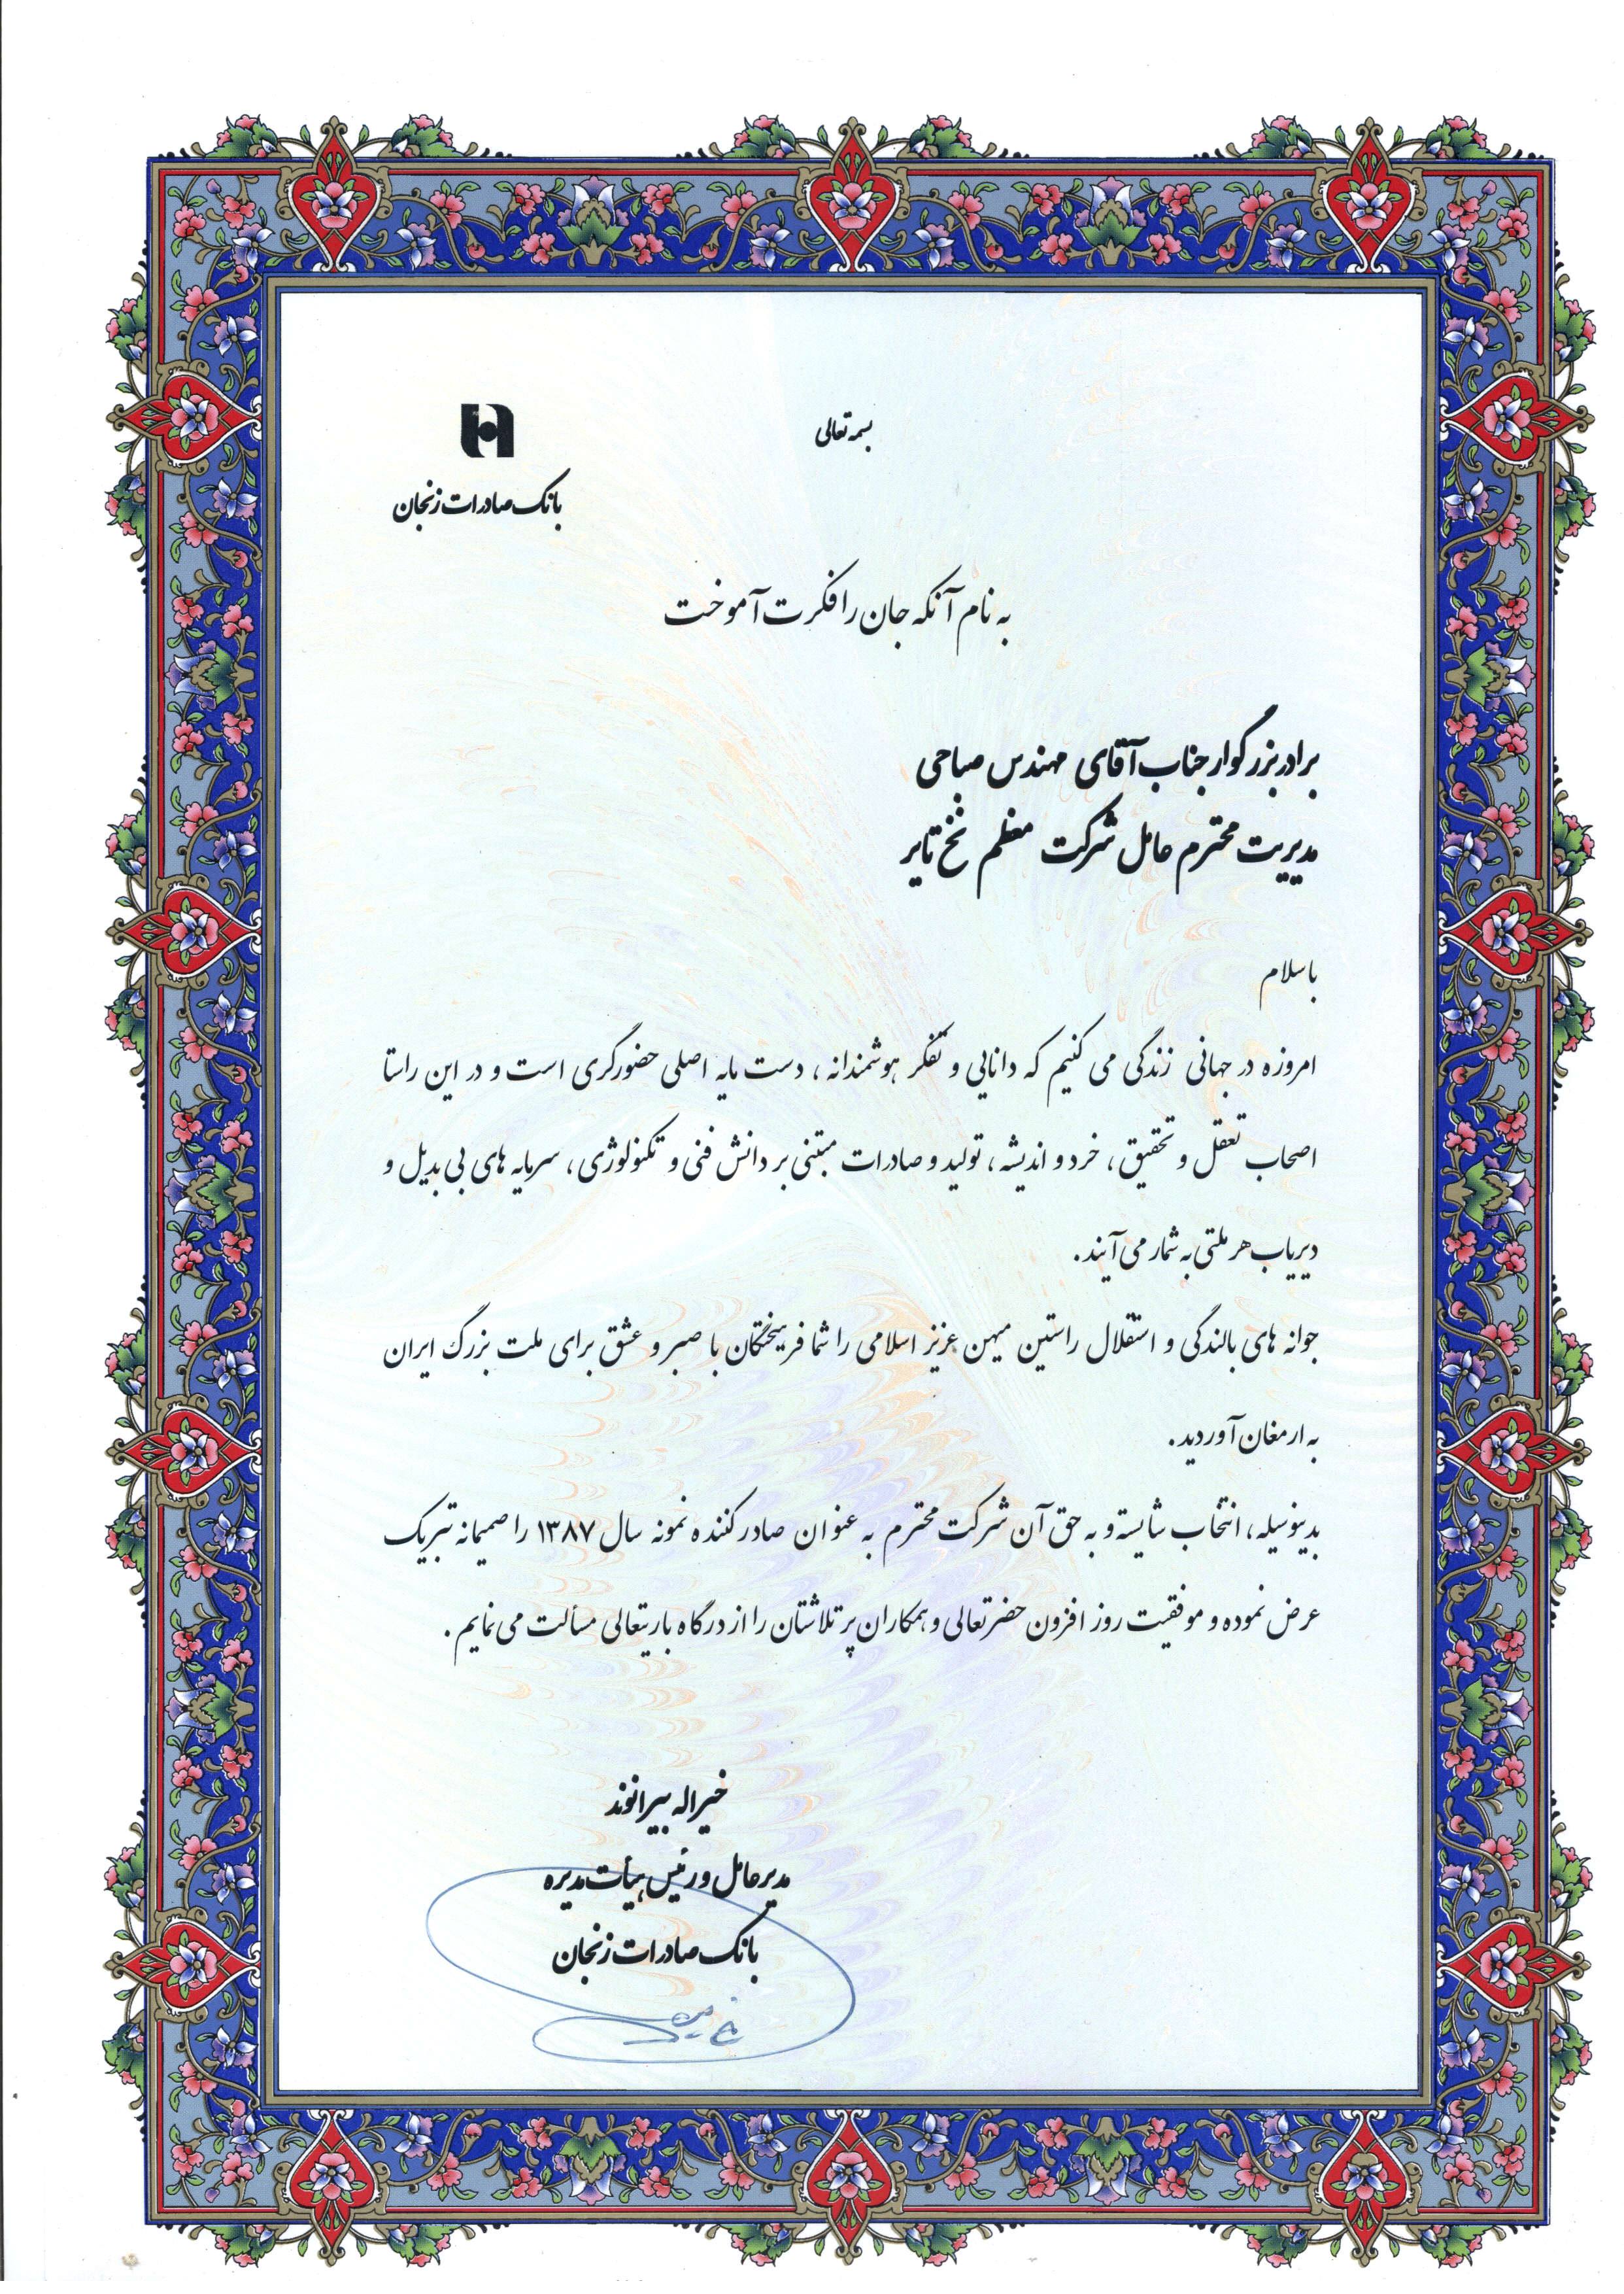 بسمه تعالی
بانک صادرات زنجان
به نام آنکه جان را فکرت آموخت
برادر بزرگوار جناب آقای مهندس صباحی
مدیریت محترم عامل شرکت معظم نخ تایر
با سلام
امروزه در جهانی زندگی می کنیم که دانایی و تفکر هوشمندانه ، دست مایه اصلی حضورگری است و در این راستا
اصحاب تعقل و تحقیق ، خرد و اندیشه ، تولید و صادرات مبتنی بر دانش فنی و تکنولوژی ، سرمایه های بی بدیل و
دیریاب هر ملتی به شمار می آیند .
جوانه های بالندگی و استقلال راستین میهن عزیز اسلامی را شما فرهیختگان با صبر و عشق برای ملت بزرگ ایران
به ارمغان آوردید .
بدینوسیله ، انتخاب شایسته و به حق آن شرکت محترم به عنوان صادر کننده نمونه سال ۱۳۸۷ را صمیمانه تبریک
عرض نموده و موفقیت روز افزون حضرتعالی و همکاران پر تلاشتان را از درگاه باریتعالی مسألت می نمایم .
خیراله بیرانوند
مدیرعامل و رئیس هیأت مدیره
بانک صادرات زنجان